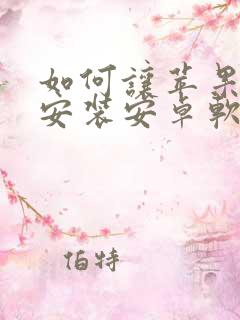 如何讓苹果
安裝安卓軟
伯特